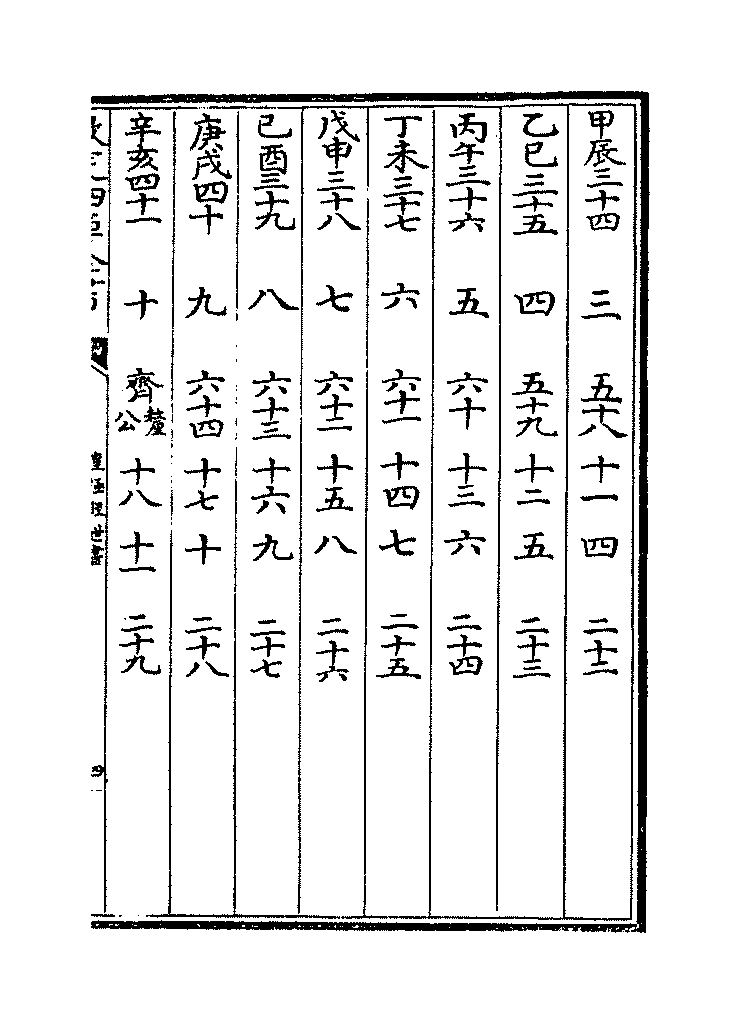 甲辰三十四 三 五十八 十一 四 二十二
乙巳三十五 四 五十九 十二 五 二十三
丙午三十六 五 六十 十三 六 二十四
丁未三十七 六 六十一 十四 七 二十五
戊申三十八 七 六十二 十五 八 二十六
已酉三十九 八 六十三 十六 九 二十七
庚戌四十 九 六十四 十七 十 二十八
辛亥四十一 十 齊釐公 十八 十一 二十九
皇極經世書 四